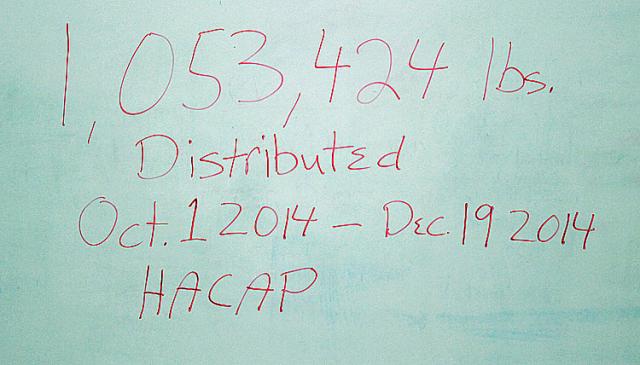 1,053,424 lbs.
Distributed
Oct. 1 2014 - Dec. 19 2014
HACAP